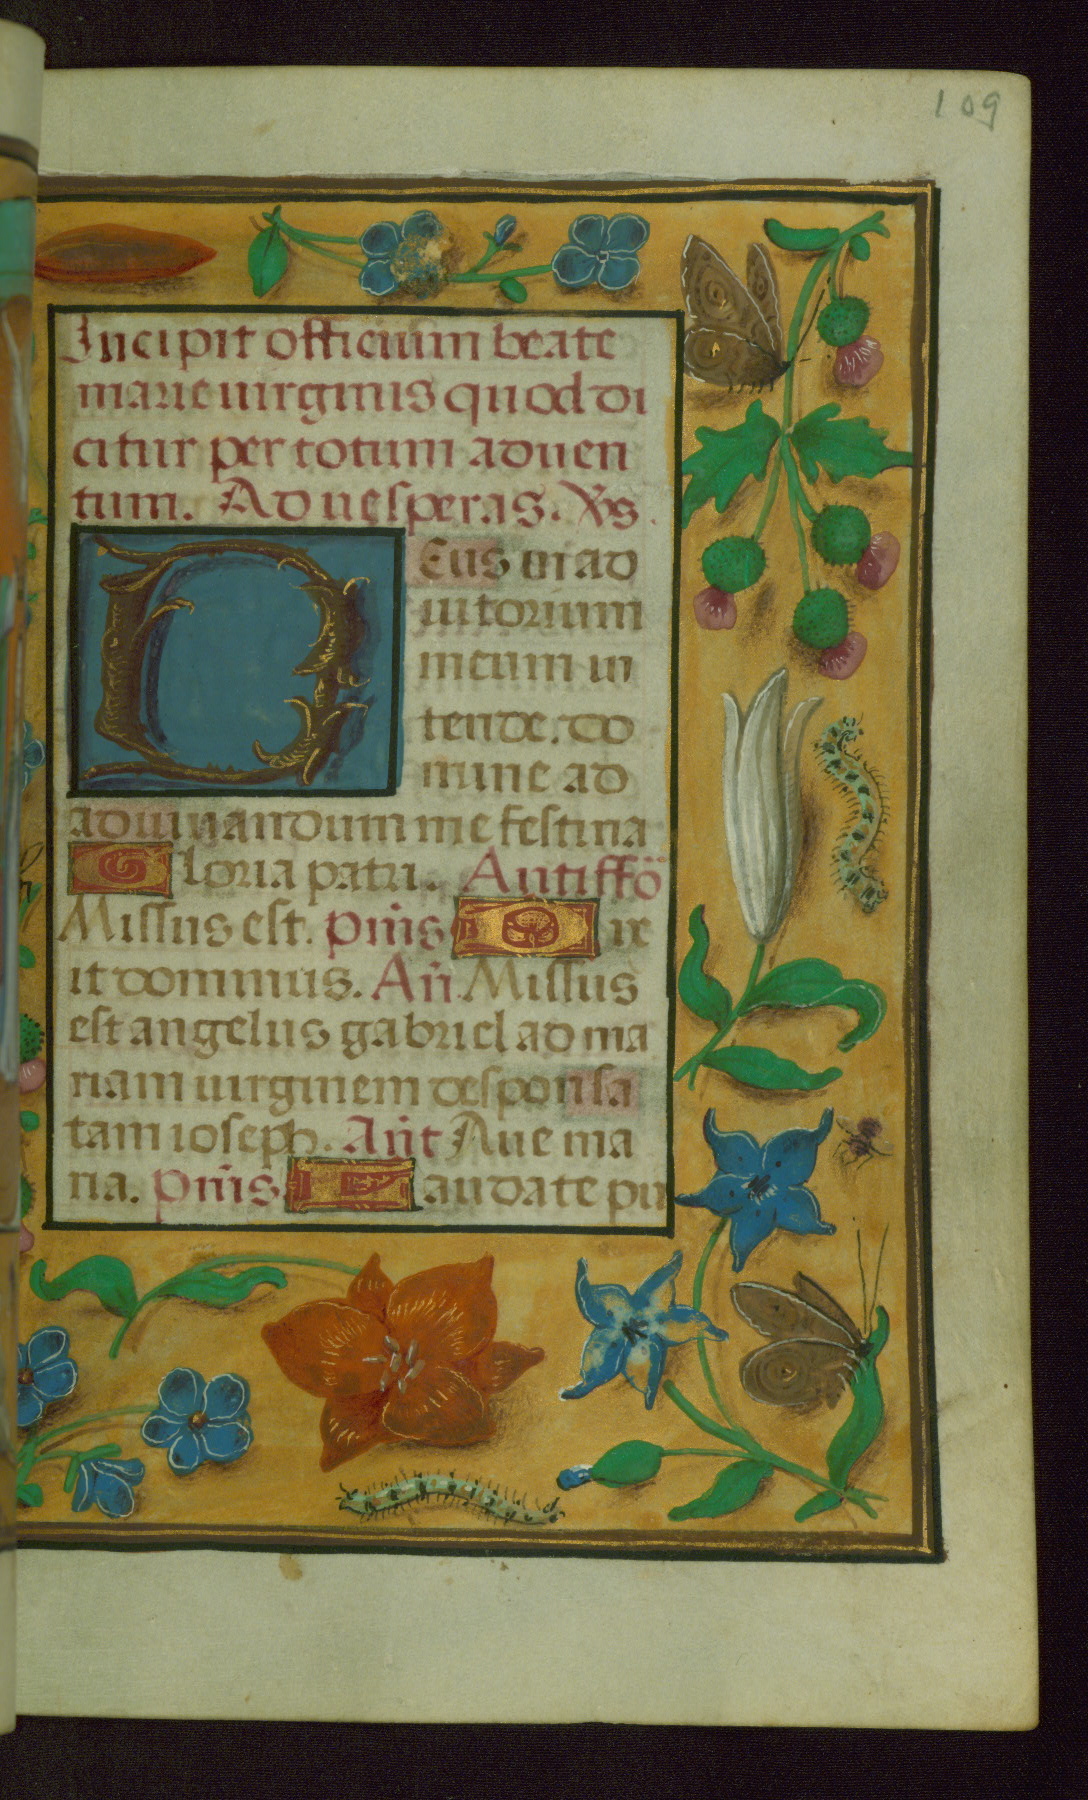 109
Incipit officium beate
marie uirginis quod di
citur per totum aduen
tum. Ad uesperas. Vs.
Deus in ad
iutorium
meum in
tende. do
mine ad
adiuuandum me festina
Gloria patri. Antiffō
Missus est. p̄mis Dix
it dominus. Añ. Missus
est angelus gabriel ad ma
riam uirginem desponsa
tam ioseph. Añt Aue ma
ria. p̄mis Laudate pu